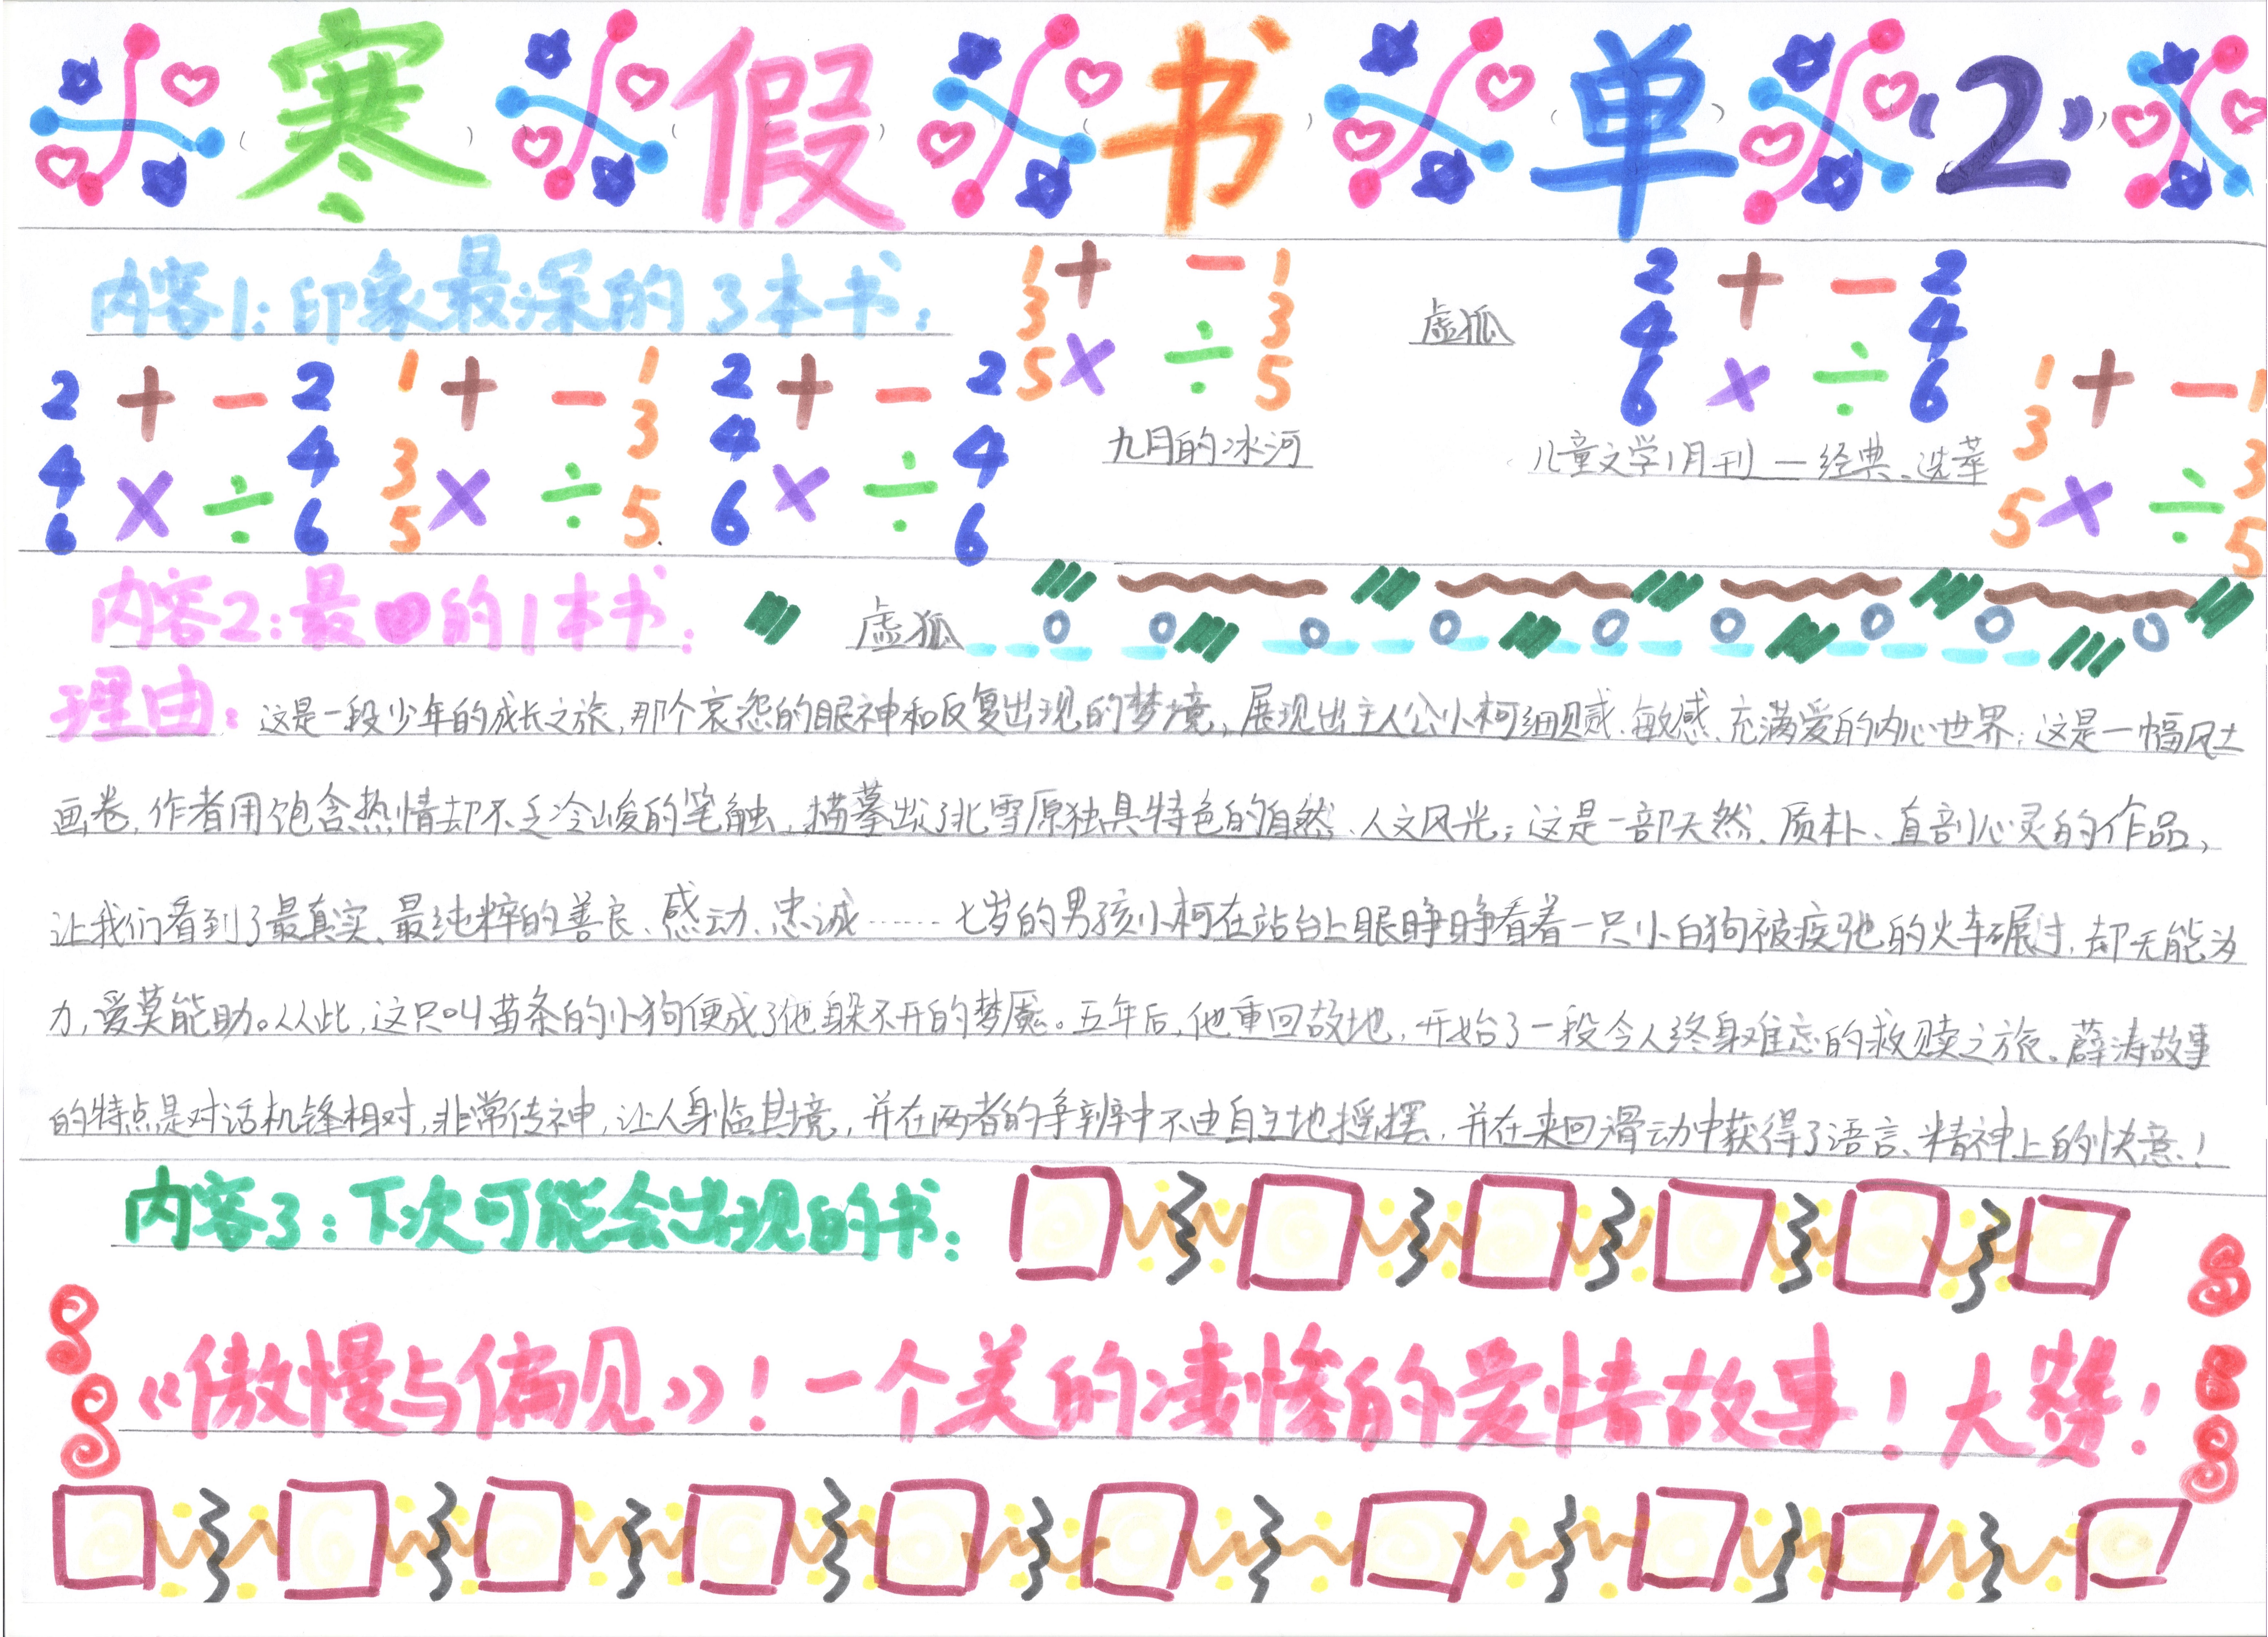 寒假书单“2”
内容1：印象最深的3本书：
虚狐
九月的冰河
儿童文学1月刊—经典、选萃
1 + - 1
3 3
5 × ÷ 5
2 + - 2
4 4
6 × ÷ 6
2 + - 2 1 + - 1 2 + - 2
4 4 3 3 4 4
6 × ÷ 6 5 × ÷ 5 6 × ÷ 6
1 + - 1
3 3
5 × ÷ 5
内容2：最❤的1本书：
虚狐
理由：这是一段少年的成长之旅，那个哀怨的眼神和反复出现的梦境，展现出主人公小柯细腻、敏感、充满爱的内心世界；这是一幅风土
画卷，作者用饱含热情却不乏冷峻的笔触，描摹出了北雪原独具特色的自然、人文风光；这是一部天然、质朴、直剖心灵的作品，
让我们看到了最真实、最纯粹的善良、感动、忠诚……七岁的男孩小柯在站台上眼睁睁看着一只小白狗被疾驰的火车碾过，却无能为
力，爱莫能助。从此，这只叫苗条的小狗便成了他躲不开的梦魇。五年后，他重回故地，开始了一段令人终身难忘的救赎之旅。薛涛故事
的特点是对话机锋相对，非常传神，让人身临其境，并在两者的争辩中不由自主地摇摆，并在来回滑动中获得了语言、精神上的快意！
内容3：下次可能会出现的书：
《傲慢与偏见》！一个美的凄惨的爱情故事！大赞！